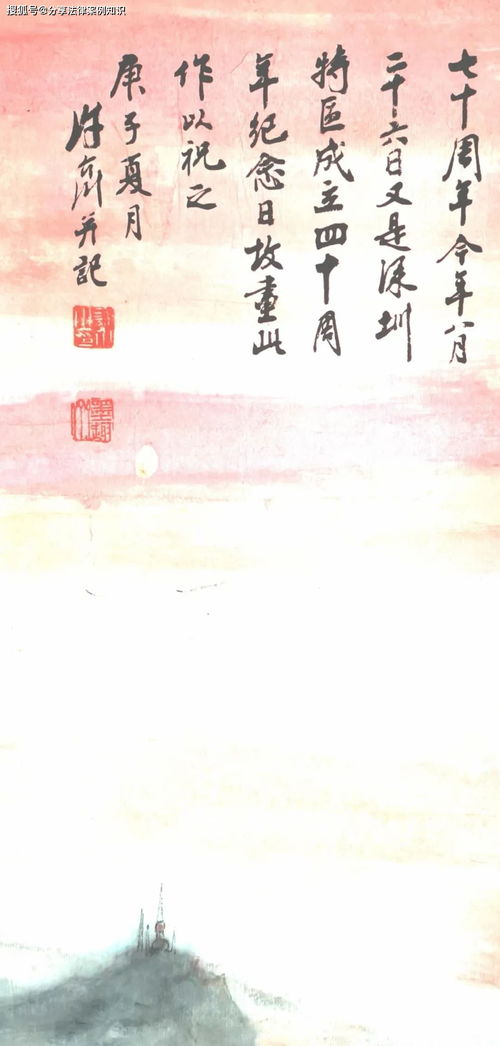 搜狐号@分享法律案例知识
七十周年今年八月
二十六日又是深圳
特區成立四十周
年纪念日故畫此
作以祝之
庚子夏月
并記